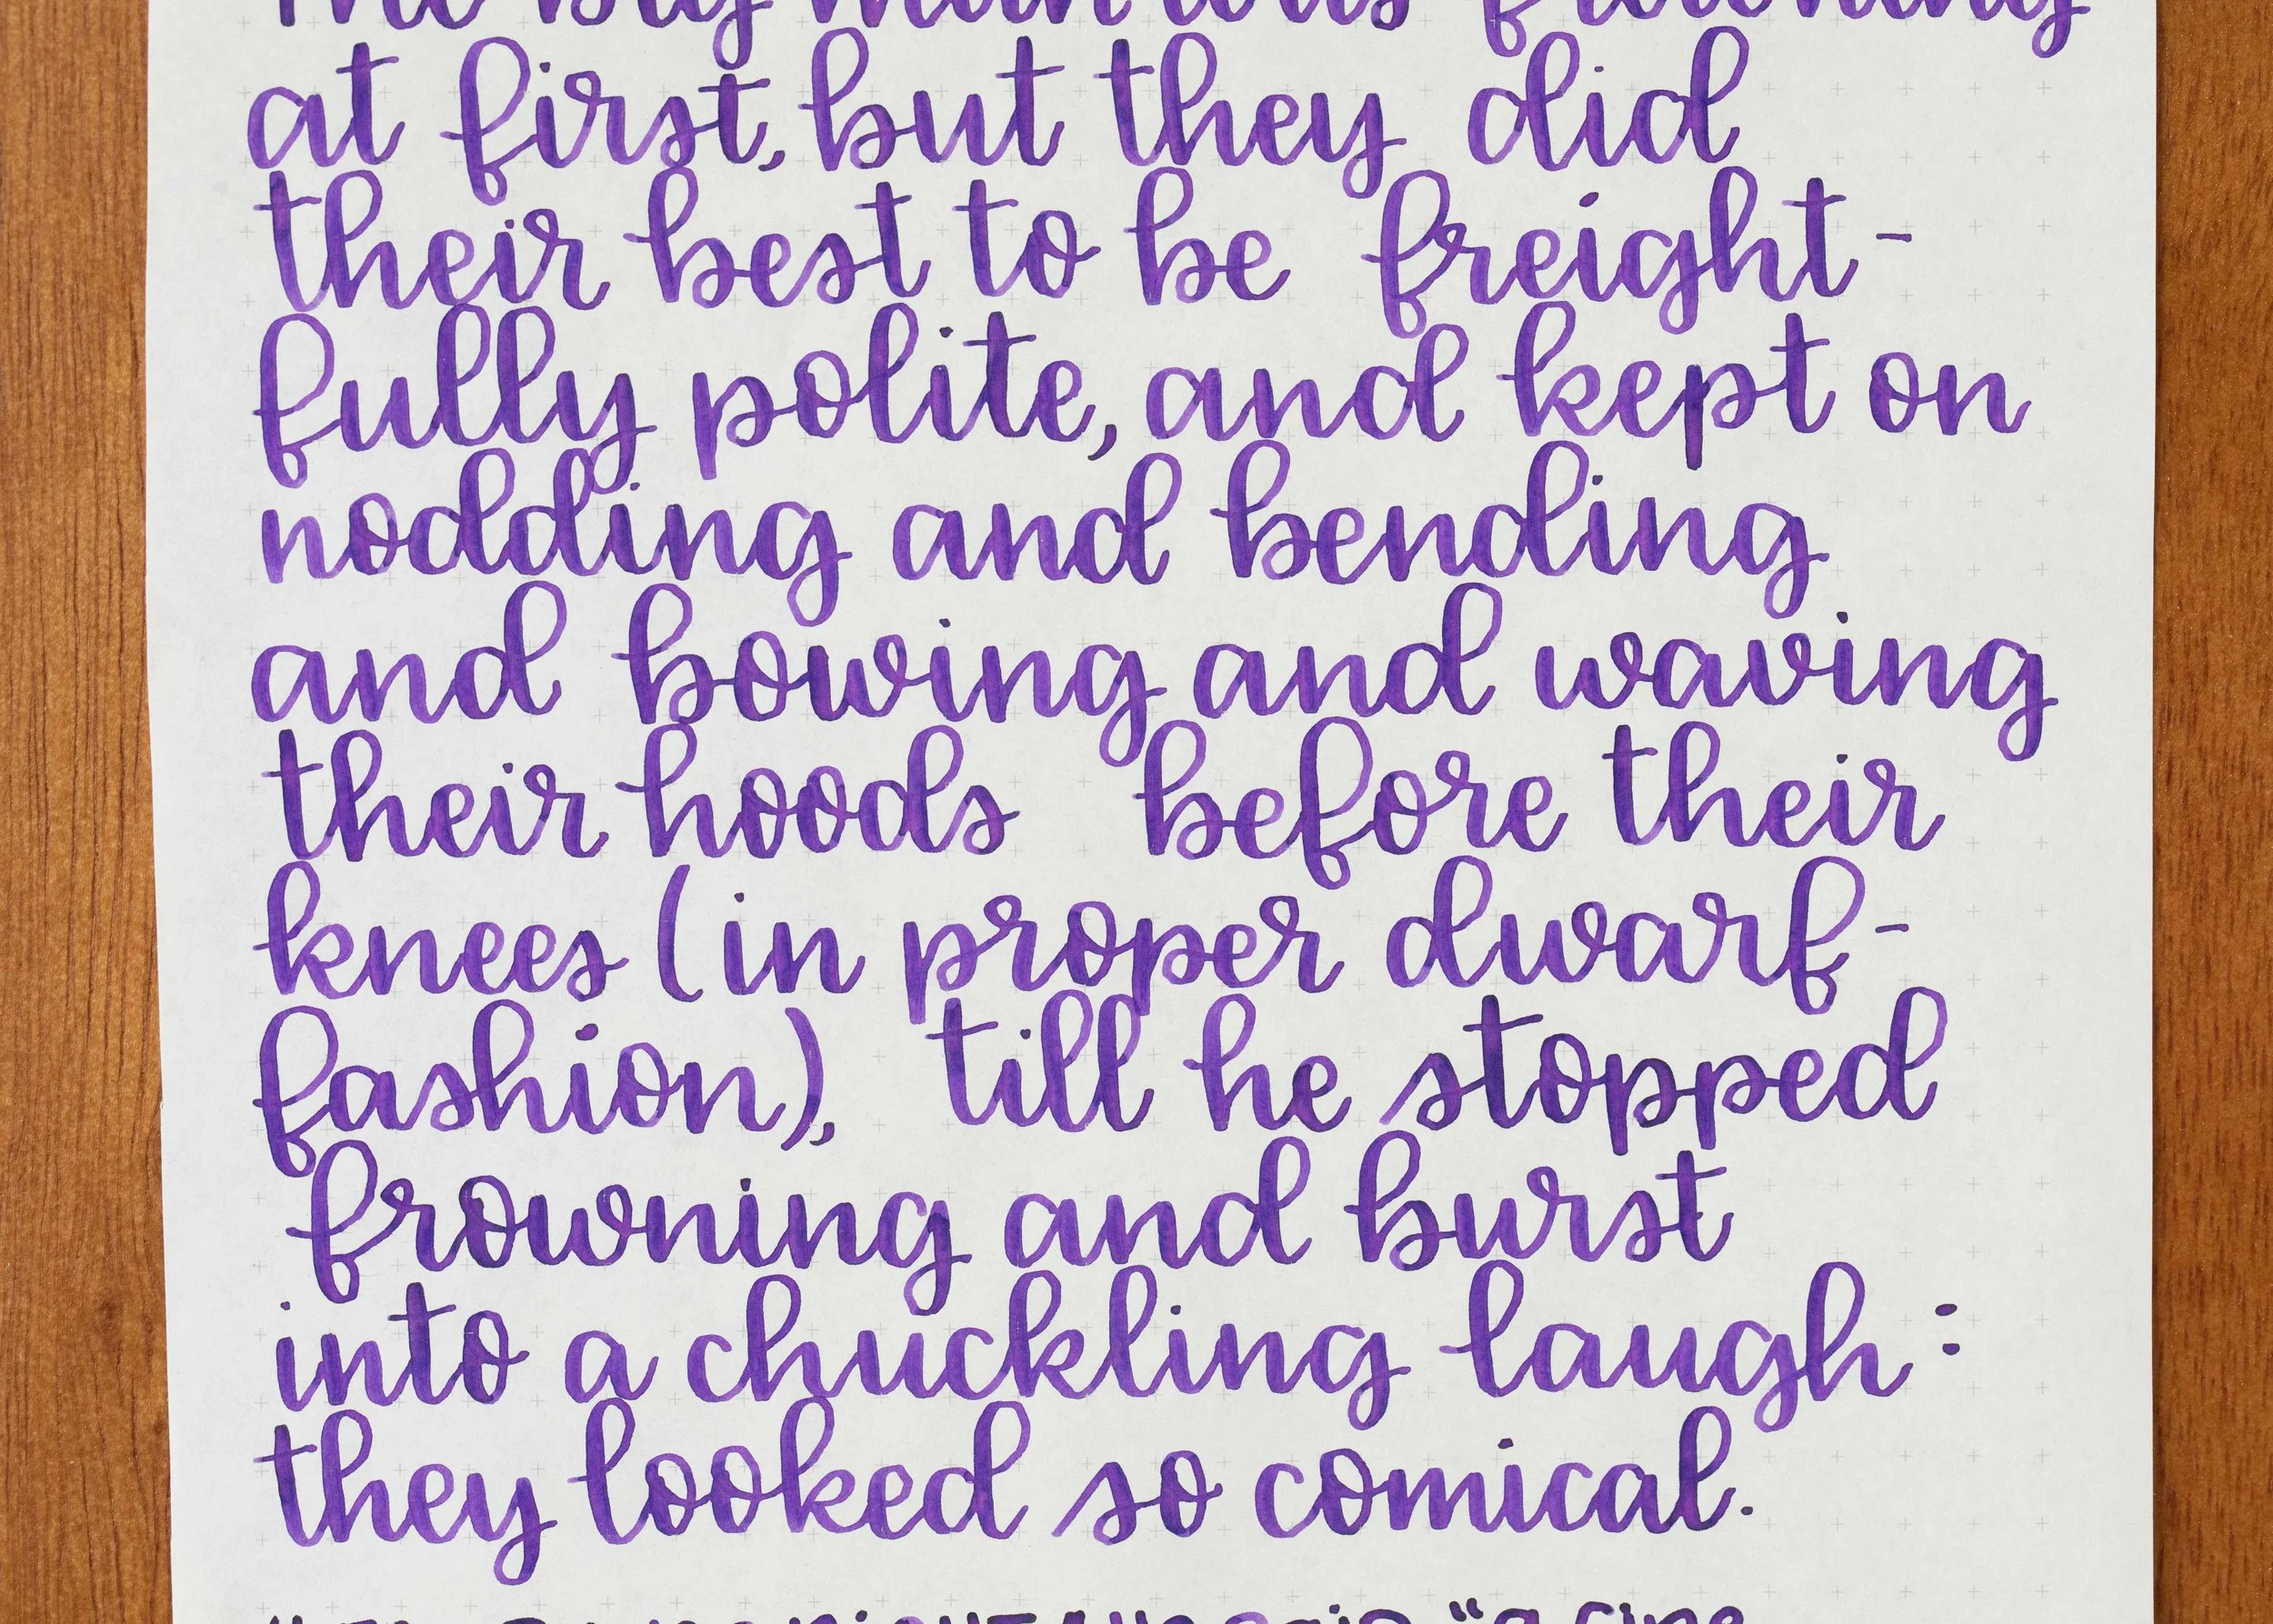 The big man was frowning
at first, but they did
their best to be freight-
fully polite, and kept on
nodding and bending
and bowing and waving
their hoods before their
knees (in proper dwarf-
fashion), till he stopped
frowning and burst
into a chuckling laugh:
they looked so comical.
said "a fine